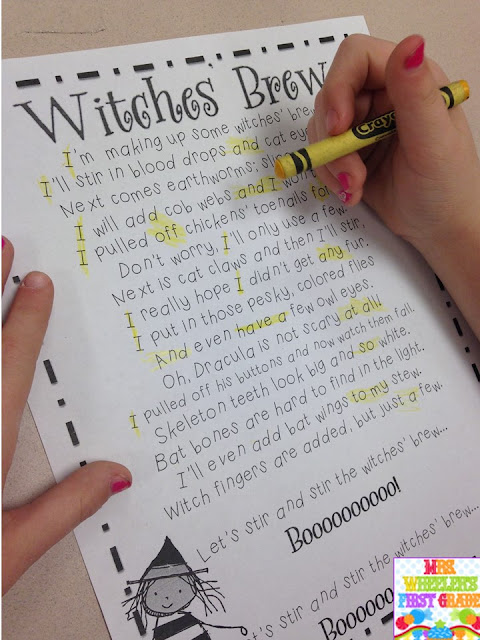 Witches Brew
I'm making up some witches' brew
I'll stir in blood drops and cat eye
Next comes earthworms;
I will add cob webs and I won't
I pulled off chickens' toenails for
Don't worry, I'll only use a few.
Next is cat claws and then I'll stir,
I really hope I didn't get any fur.
I put in those pesky, colored flies
And even have a few owl eyes.
Oh, Dracula is not scary at all!
I pulled off his buttons and now watch them fall.
Skeleton teeth look big and so white.
Bat bones are hard to find in the light.
I'll even add bat wings to my stew.
Witch fingers are added, but just a few.
Let's stir and stir the witches' brew...
Boooooooooo!
stir and stir the witches' brew...
Crayo
MRS.
WHEELER'S
FIRST GRADE